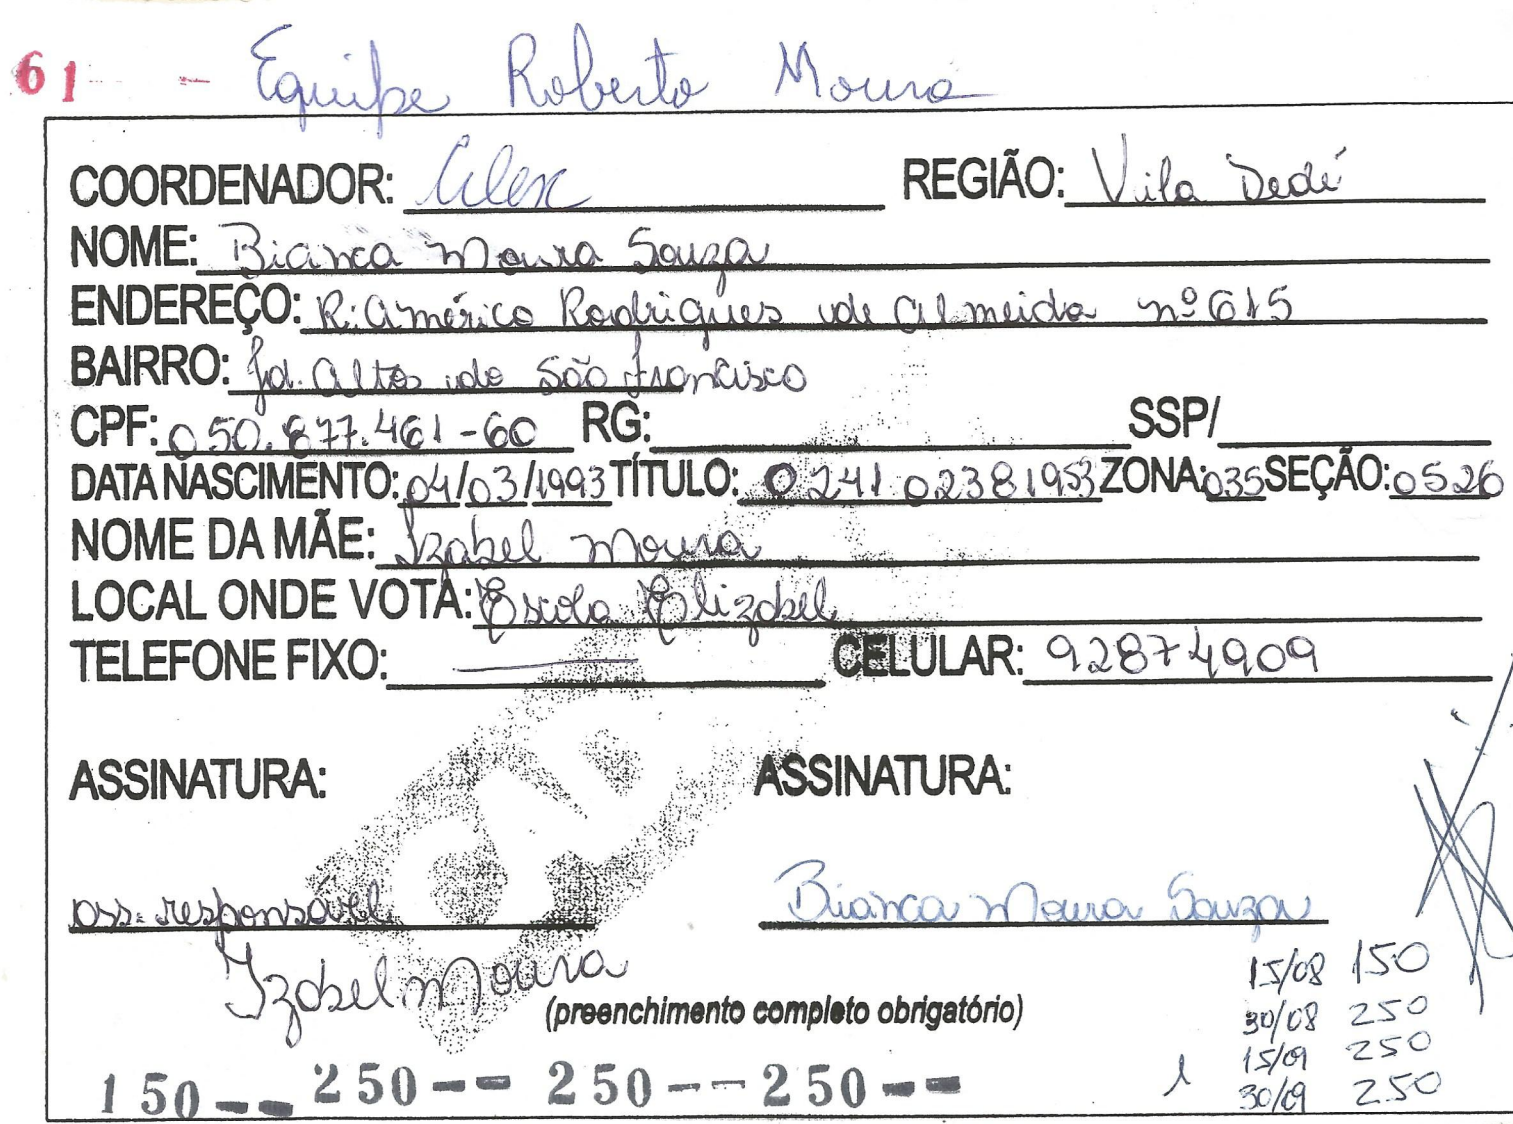 61 - Equipe Roberto Moura
COORDENADOR: Alex REGIÃO: Vila Dedé
NOME: Bianca Moura Souza
ENDEREÇO: R: Américo Rodrigues de Almeida nº 615
BAIRRO: Jd. Altos do São Francisco
CPF: 050.877.461-60 RG: SSP/
DATA NASCIMENTO: 04/03/1993 TÍTULO: 0241 0238 1953 ZONA: 035 SEÇÃO: 0526
NOME DA MÃE: Izabel Moura
LOCAL ONDE VOTA: Escola Elizabel
TELEFONE FIXO: — CELULAR: 92874909
ASSINATURA: ASSINATURA:
ass. responsável Bianca Moura Souza
Izabel Moura
(preenchimento completo obrigatório)
15/08 150
30/08 250
15/09 250
30/09 250
150-- 250-- 250-- 250--
CAD